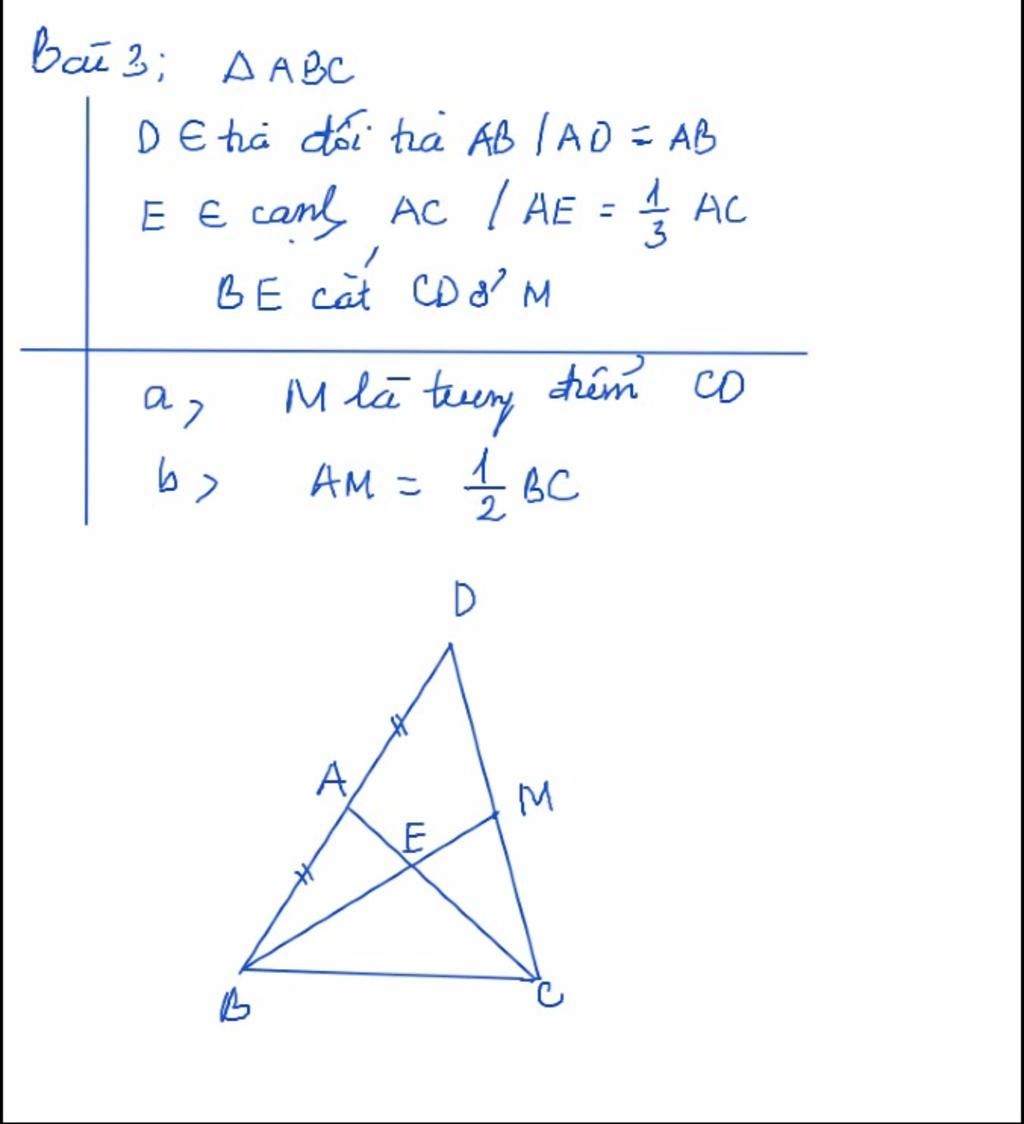 Bài 3; Δ ABC
D ∈ tia đối tia AB / AD = AB
E ∈ cạnh AC / AE = 1/3 AC
BE cắt CD ở M
a, M là trung điểm CD
b> AM = 1/2 BC
D
A
M
E
B
C